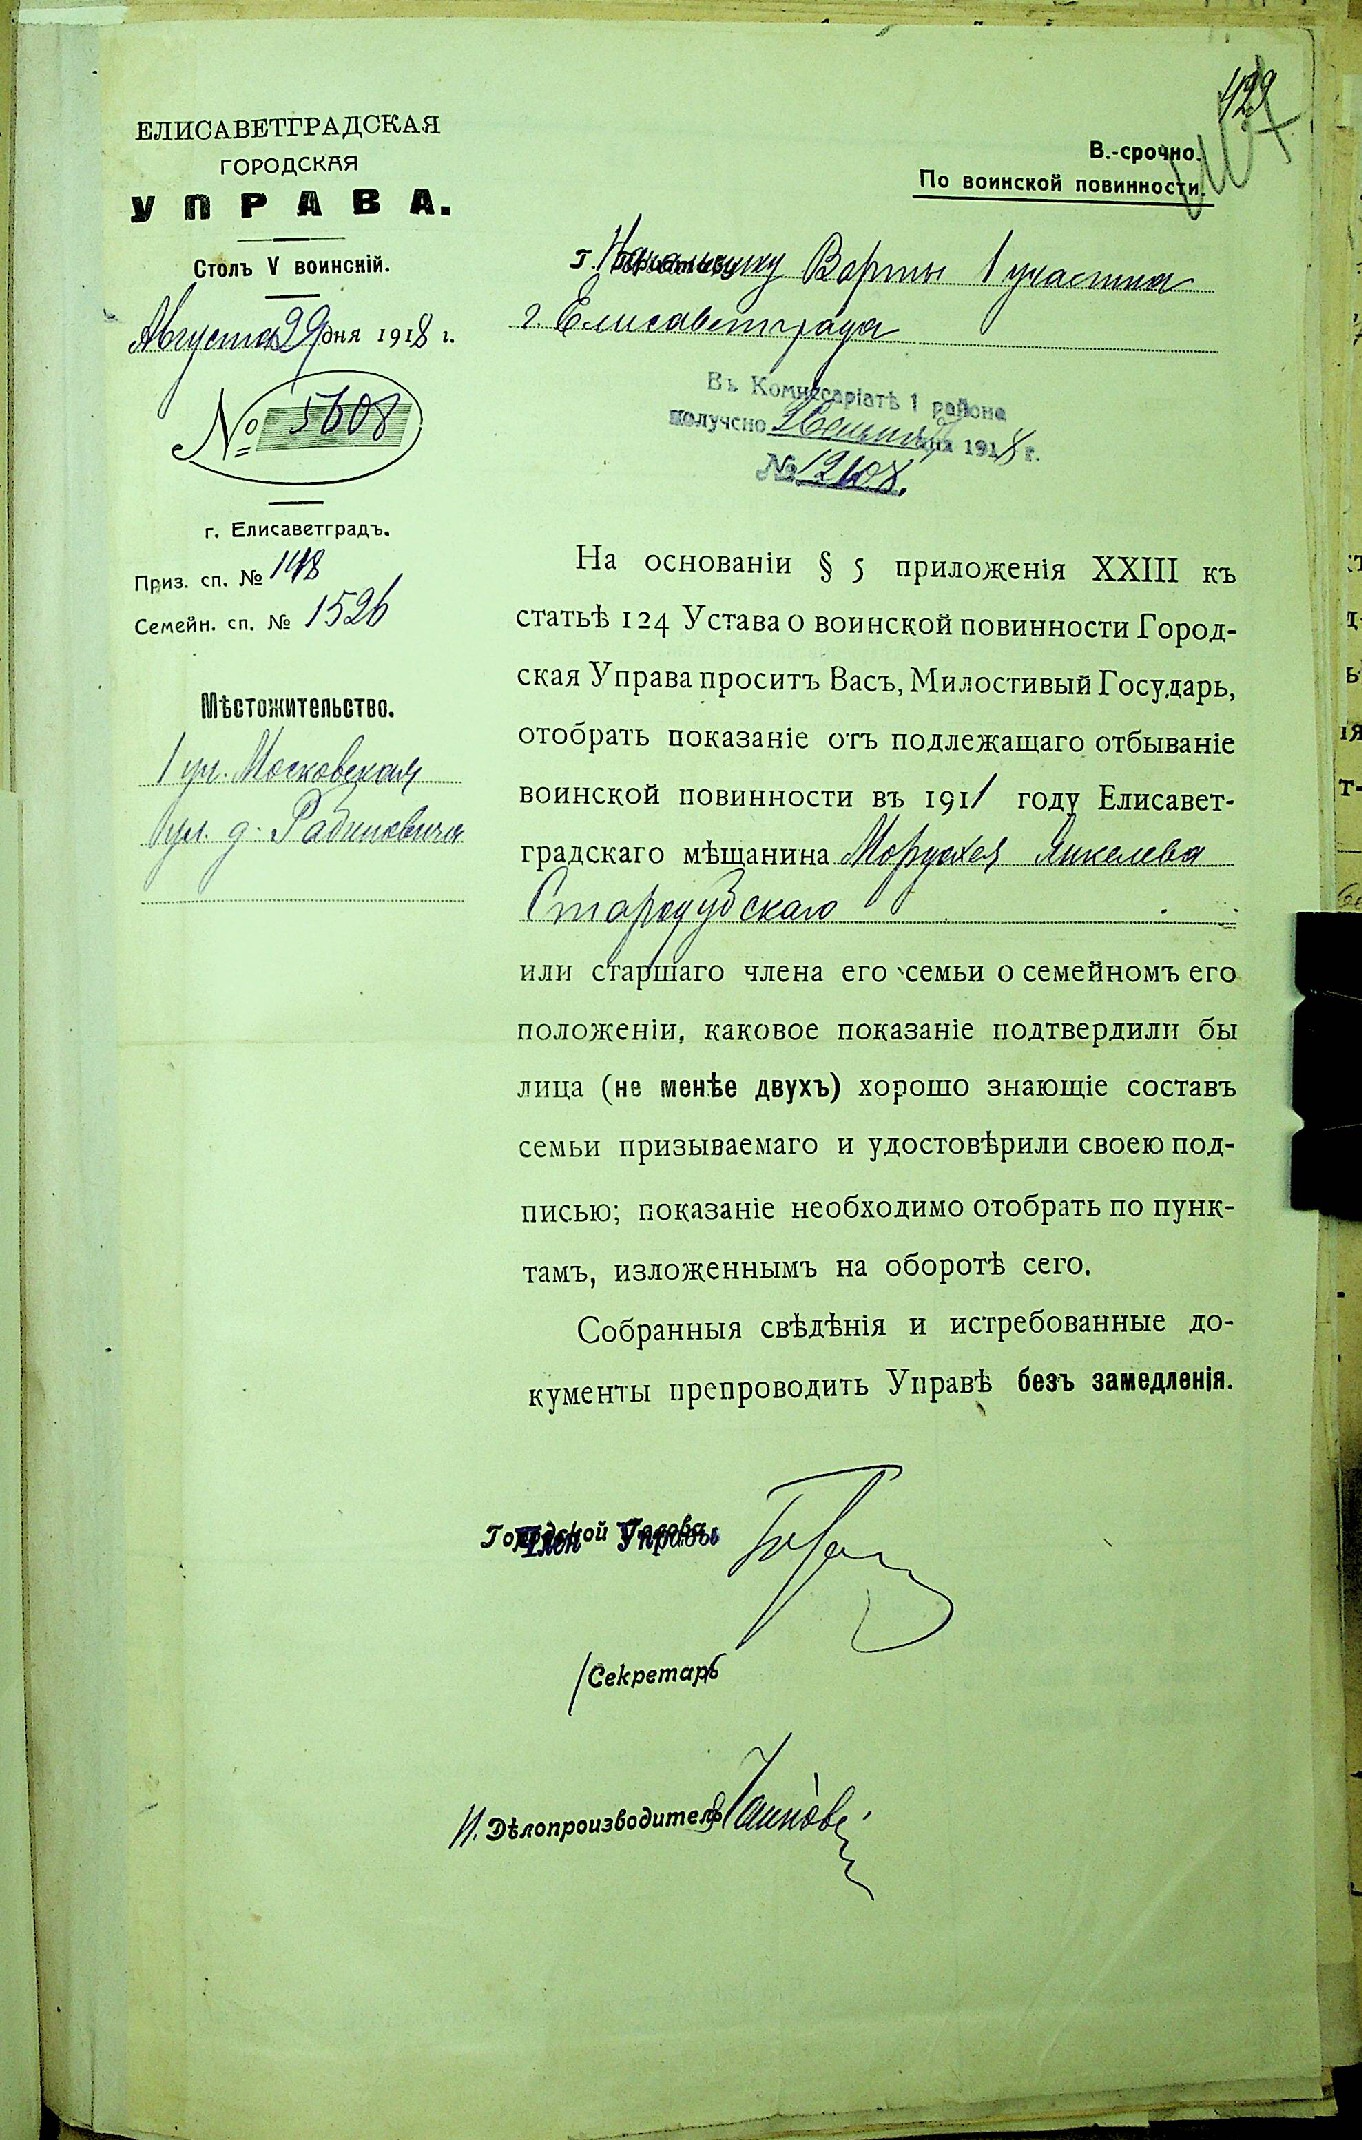 429
ЕЛИСАВЕТГРАДСКАЯ
ГОРОДСКАЯ
УПРАВА.
Столъ V воинскій.
Августа 29 дня 1918 г.
№ 5608
г. Елисаветградъ.
Приз. сп. № 148
Семейн. сп. № 1526
Мѣстожительство.
1 уч. Московская
ул. д. Рабиновича
В.-срочно.
По воинской повинности.
Г. Начальнику Варты 1 участка
г. Елисаветграда
Въ Комиссаріатѣ 1 района
получено дня 1918 г.
№ 12608.
На основаніи § 5 приложенія XXIII къ
статьѣ 124 Устава о воинской повинности Город-
ская Управа проситъ Васъ, Милостивый Государь,
отобрать показаніе отъ подлежащаго отбыванію
воинской повинности въ 1911 году Елисавет-
градскаго мѣщанина Мордхея Янкелева
Стародубскаго
или старшаго члена его семьи о семейномъ его
положеніи, каковое показаніе подтвердили бы
лица (не менѣе двухъ) хорошо знающіе составъ
семьи призываемаго и удостовѣрили своею под-
писью; показаніе необходимо отобрать по пунк-
тамъ, изложеннымъ на оборотѣ сего.
Собранныя свѣдѣнія и истребованные до-
кументы препроводить Управѣ безъ замедленія.
Городской Голова
Член Управы
Секретарь
И. Дѣлопроизводитель